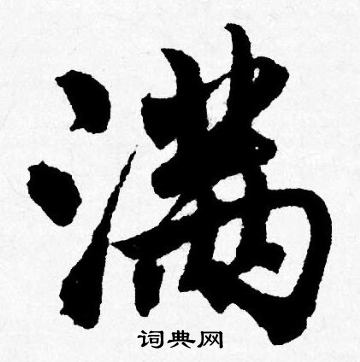 满
词典网